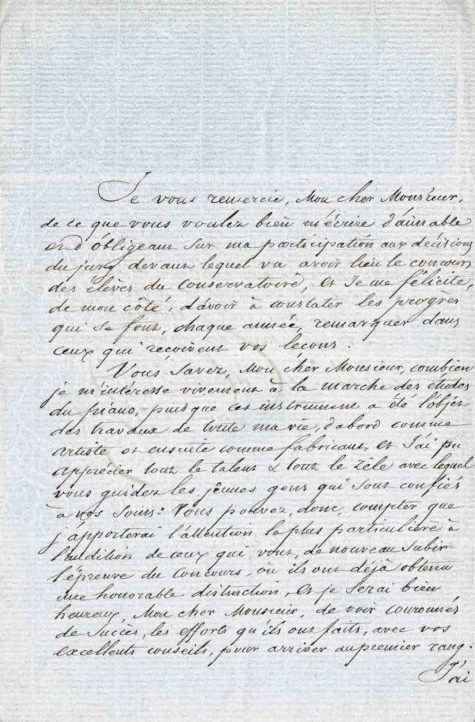 Je vous remercie, Mon cher Monsieur,
de ce que vous voulez bien m'écrire d'aimable
et d'obligeant sur ma participation aux décisions
du jury devant lequel va avoir lieu le concours
des élèves du Conservatoire, et je me félicite,
de mon côté, d'avoir à constater les progrès
qui se font, chaque année, remarquer dans
ceux qui reçoivent vos leçons.
Vous savez, Mon cher Monsieur, combien
je m'intéresse vivement à la marche des études
du piano, puisque cet instrument a été l'objet
des travaux de toute ma vie, d'abord comme
artiste et ensuite comme fabricant, et j'ai pu
apprécier tout le talent & tout le zèle avec lequel
vous guidez les jeunes gens qui sont confiés
à vos soins: Vous pouvez, donc, compter que
j'apporterai l'attention la plus particulière à
l'audition de ceux qui vont, de nouveau subir
l'épreuve du Concours où ils ont déjà obtenu
une honorable distinction, et je serai bien
heureux, Mon cher Monsieur, de voir couronnés
de succès, les efforts qu'ils ont faits, avec vos
excellents conseils, pour arriver au premier rang.
J'ai